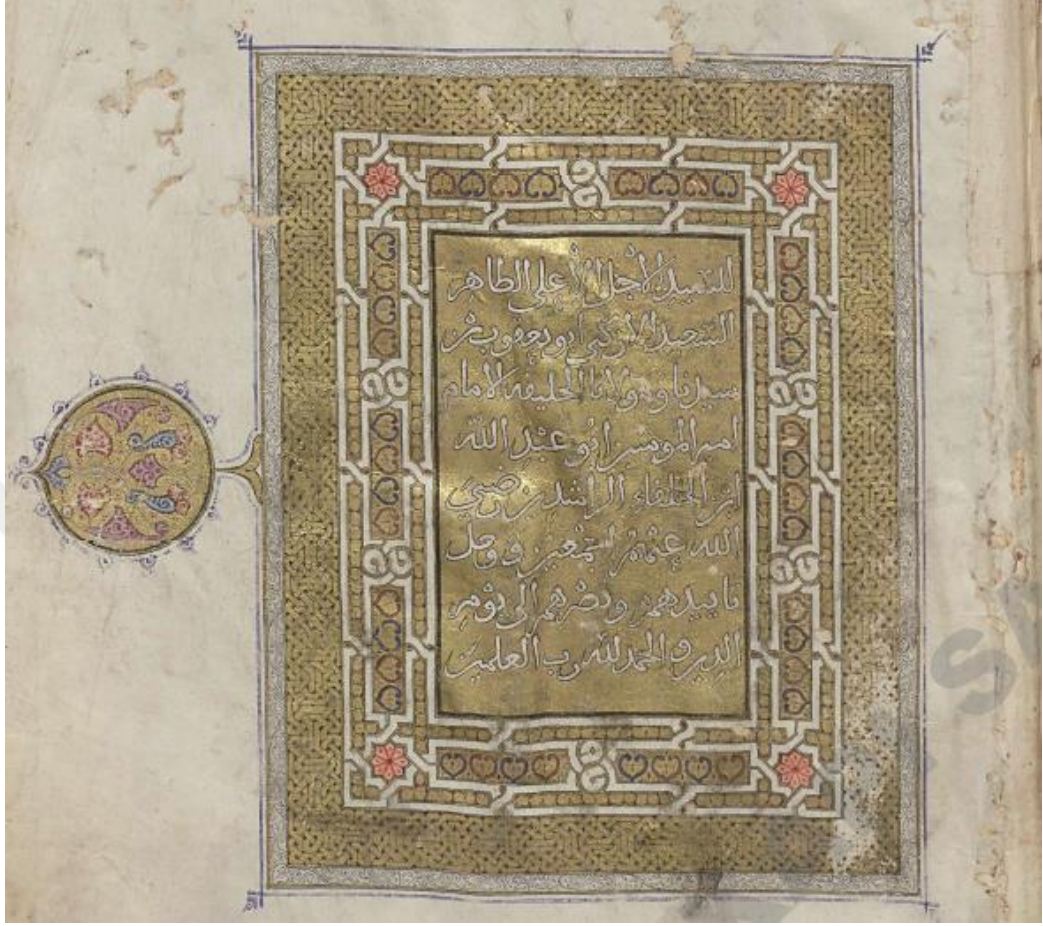 للسيد الأجل الأعلى الطاهر
السعيد الأزكى أبو يعقوب بن
سيدنا ومولانا الخليفة الإمام
أمير المومنين أبو عبد الله
ابن الخلفاء الراشدين رضي
الله عنهم أجمعين ووصل
تاييدهم ونصرهم إلى يوم
الدين والحمد لله رب العلمين